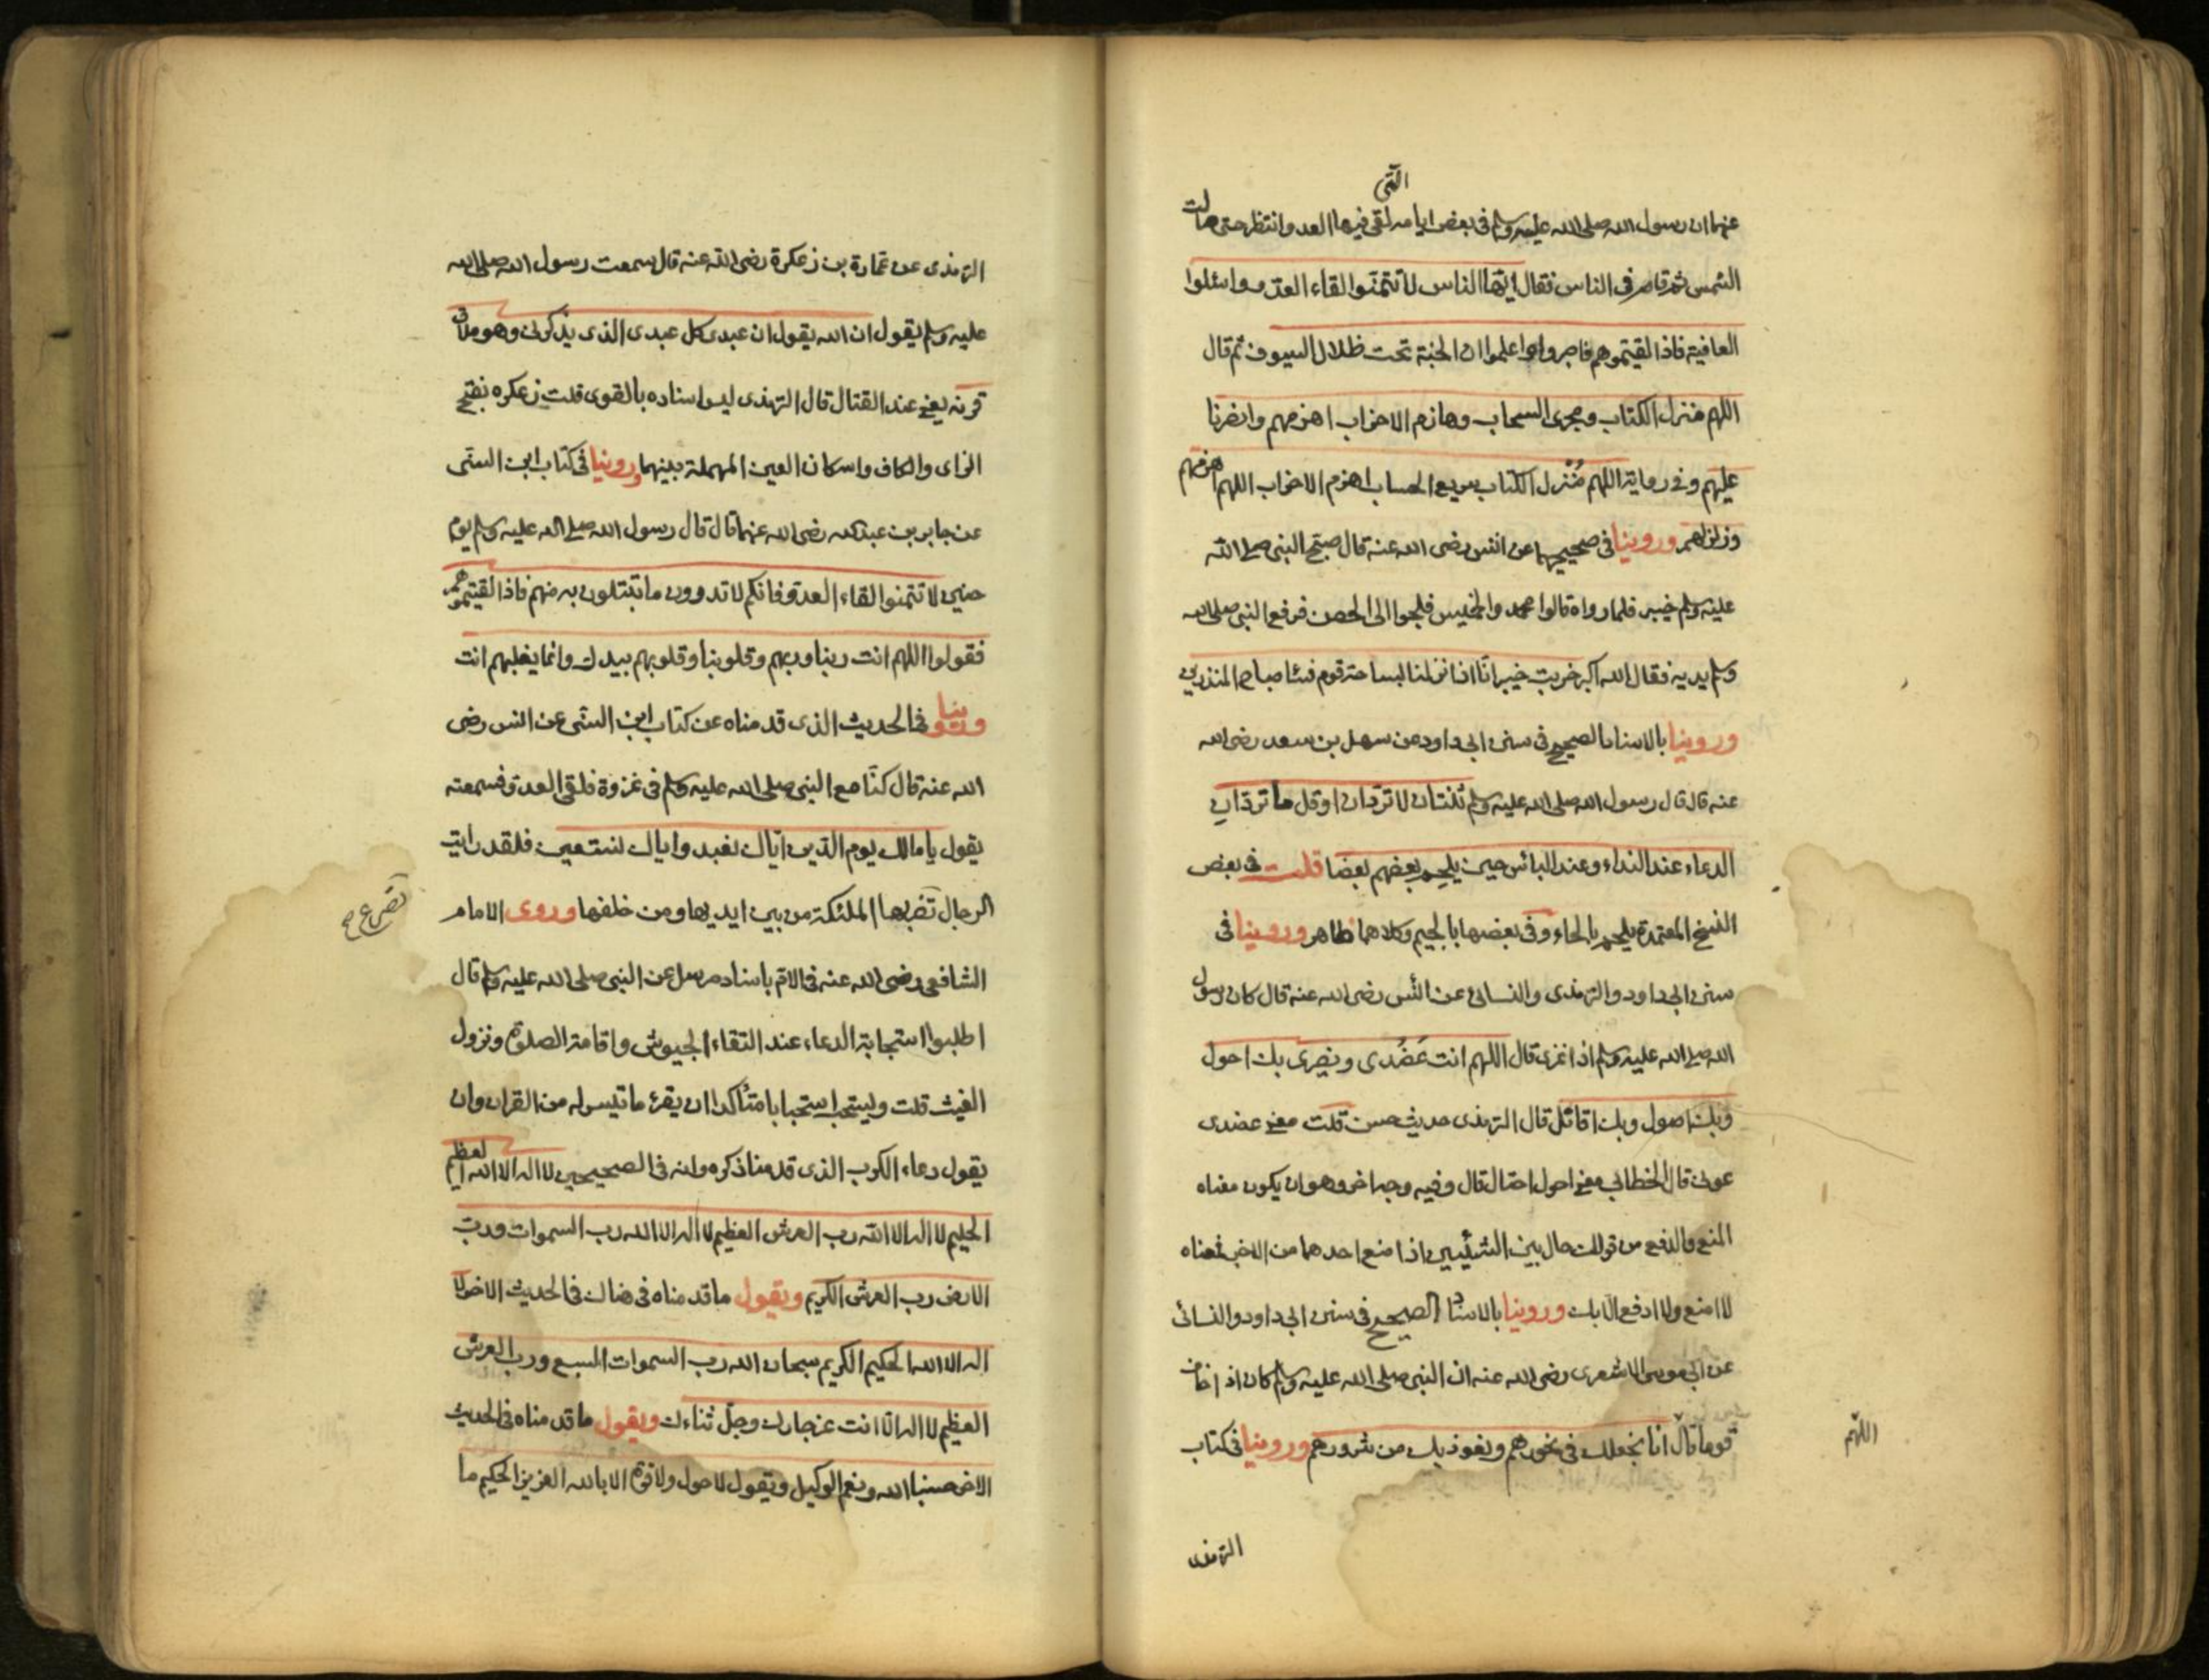 التى
عنهما ان رسول الله صلى الله عليه وسلم فى بعض ايامه لقى فيها العدو انتظر حتى مالت
الشمس ثم قام فى الناس فقال ايها الناس لا تتمنوا لقاء العدو واسئلوا
العافية فاذا لقيتموهم فاصبروا واعلموا ان الجنة تحت ظلال السيوف ثم قال
اللهم منزل الكتاب ومجرى السحاب وهازم الاحزاب اهزمهم وانصرنا
عليهم وفى رواية اللهم مُنْزل الكتاب سريع الحساب اهزم الاحزاب اللهم اهزمهم
وزلزلهم وروينا فى صحيحيهما عن انس رضى الله عنه قال صبّح النبى صلى الله
عليه وسلم خيبر فلما رواه قالوا محمد والخميس فلجوا الى الحصن فرفع النبى صلى الله
وسلم يديه فقال الله اكبر خربت خيبر انّا اذا نزلنا بساحة قوم فساء صباح المنذرين
وروينا بالاسناد الصحيح فى سنن ابى داود عن سهل بن سعد رضى الله
عنه قال قال رسول الله صلى الله عليه وسلم ثنتان لا تردّان او قل ما تردّان
الدعاء عند النداء وعند البائس حين يلحم بعضهم بعضا قلت فى بعض
النسخ المعتمدة يلحم بالحاء وفى بعضها بالجيم وكلاهما ظاهر وروينا فى
سنن ابى داود والترمذى والنسائى عن انس رضى الله عنه قال كان رسول
الله صلى الله عليه وسلم اذا غزى قال اللهم انت عَضُدى ونصيرى بك احول
وبك اصول وبك اقاتل قال الترمذى حديث حسن قلت معنى عضدى
عونى قال الخطابى معنى احول احتال قال وفيه وجه اخر وهو ان يكون معناه
المنع والدفع من قولك حال بين الشيئين اذا منع احدهما من الاخر فمعناه
لا امنع ولا ادفع الا بك وروينا بالاسناد الصحيح فى سنن ابى داود والنسائى
عن ابى موسى الاشعرى رضى الله عنه ان النبى صلى الله عليه وسلم كان اذا خاف
قوما قال انا نجعلك فى نحورهم ونعوذ بك من شرورهم وروينا فى كتاب
اللّهم
الترمذى
الترمذى عن عمارة بن زعكرة رضى الله عنه قال سمعت رسول الله صلى الله
عليه وسلم يقول ان الله يقول ان عبدى كل عبدى الذى يذكرنى وهو ملاق
قرنه يعنى عند القتال قال الترمذى ليس اسناده بالقوى قلت زعكره بفتح
الزاى والكاف واسكان العين المهملة بينهما وروينا فى كتاب ابن السنى
عن جابر بن عبد الله رضى الله عنهما قال قال رسول الله صلى الله عليه وسلم يوم
حنين لا تتمنوا لقاء العدو فانكم لا تدرون ما تبتلون به منهم فاذا لقيتموهم
فقولوا اللهم انت ربنا وربهم وقلوبنا وقلوبهم بيدك وانما يغلبهم انت
وروينا فى الحديث الذى قدمناه عن كتاب ابن السنى عن انس رضى
الله عنه قال كنّا مع النبى صلى الله عليه وسلم فى غزوة فلقى العدو فسمعته
يقول يا مالك يوم الدين اياك نعبد واياك نستعين فلقد رايت
الرجال تضربها الملئكة من بين ايديها ومن خلفها وروى الامام
تصرع
الشافعى رضى الله عنه فى الام باسناد مرسل عن النبى صلى الله عليه وسلم قال
اطلبوا استجابة الدعاء عند التقاء الجيوش واقامة الصلوة ونزول
الغيث قلت ويستحب استحبابا متأكدا ان يقرء ما تيسر له من القران وان
يقول دعاء الكرب الذى قدمنا ذكره وانه فى الصحيحين لا اله الا الله العظيم
الحليم لا اله الا الله رب العرش العظيم لا اله الا الله رب السموات ورب
الارض رب العرش الكريم ويقول ما قدمناه فى هناك فى الحديث الاخر لا
اله الا الله الحكيم الكريم سبحان الله رب السموات السبع ورب العرش
العظيم لا اله الا انت عز جارك وجلّ ثناءك ويقول ما قدمناه فى الحديث
الاخر حسبنا الله ونعم الوكيل ويقول لا حول ولا قوة الا بالله العزيز الحكيم ما